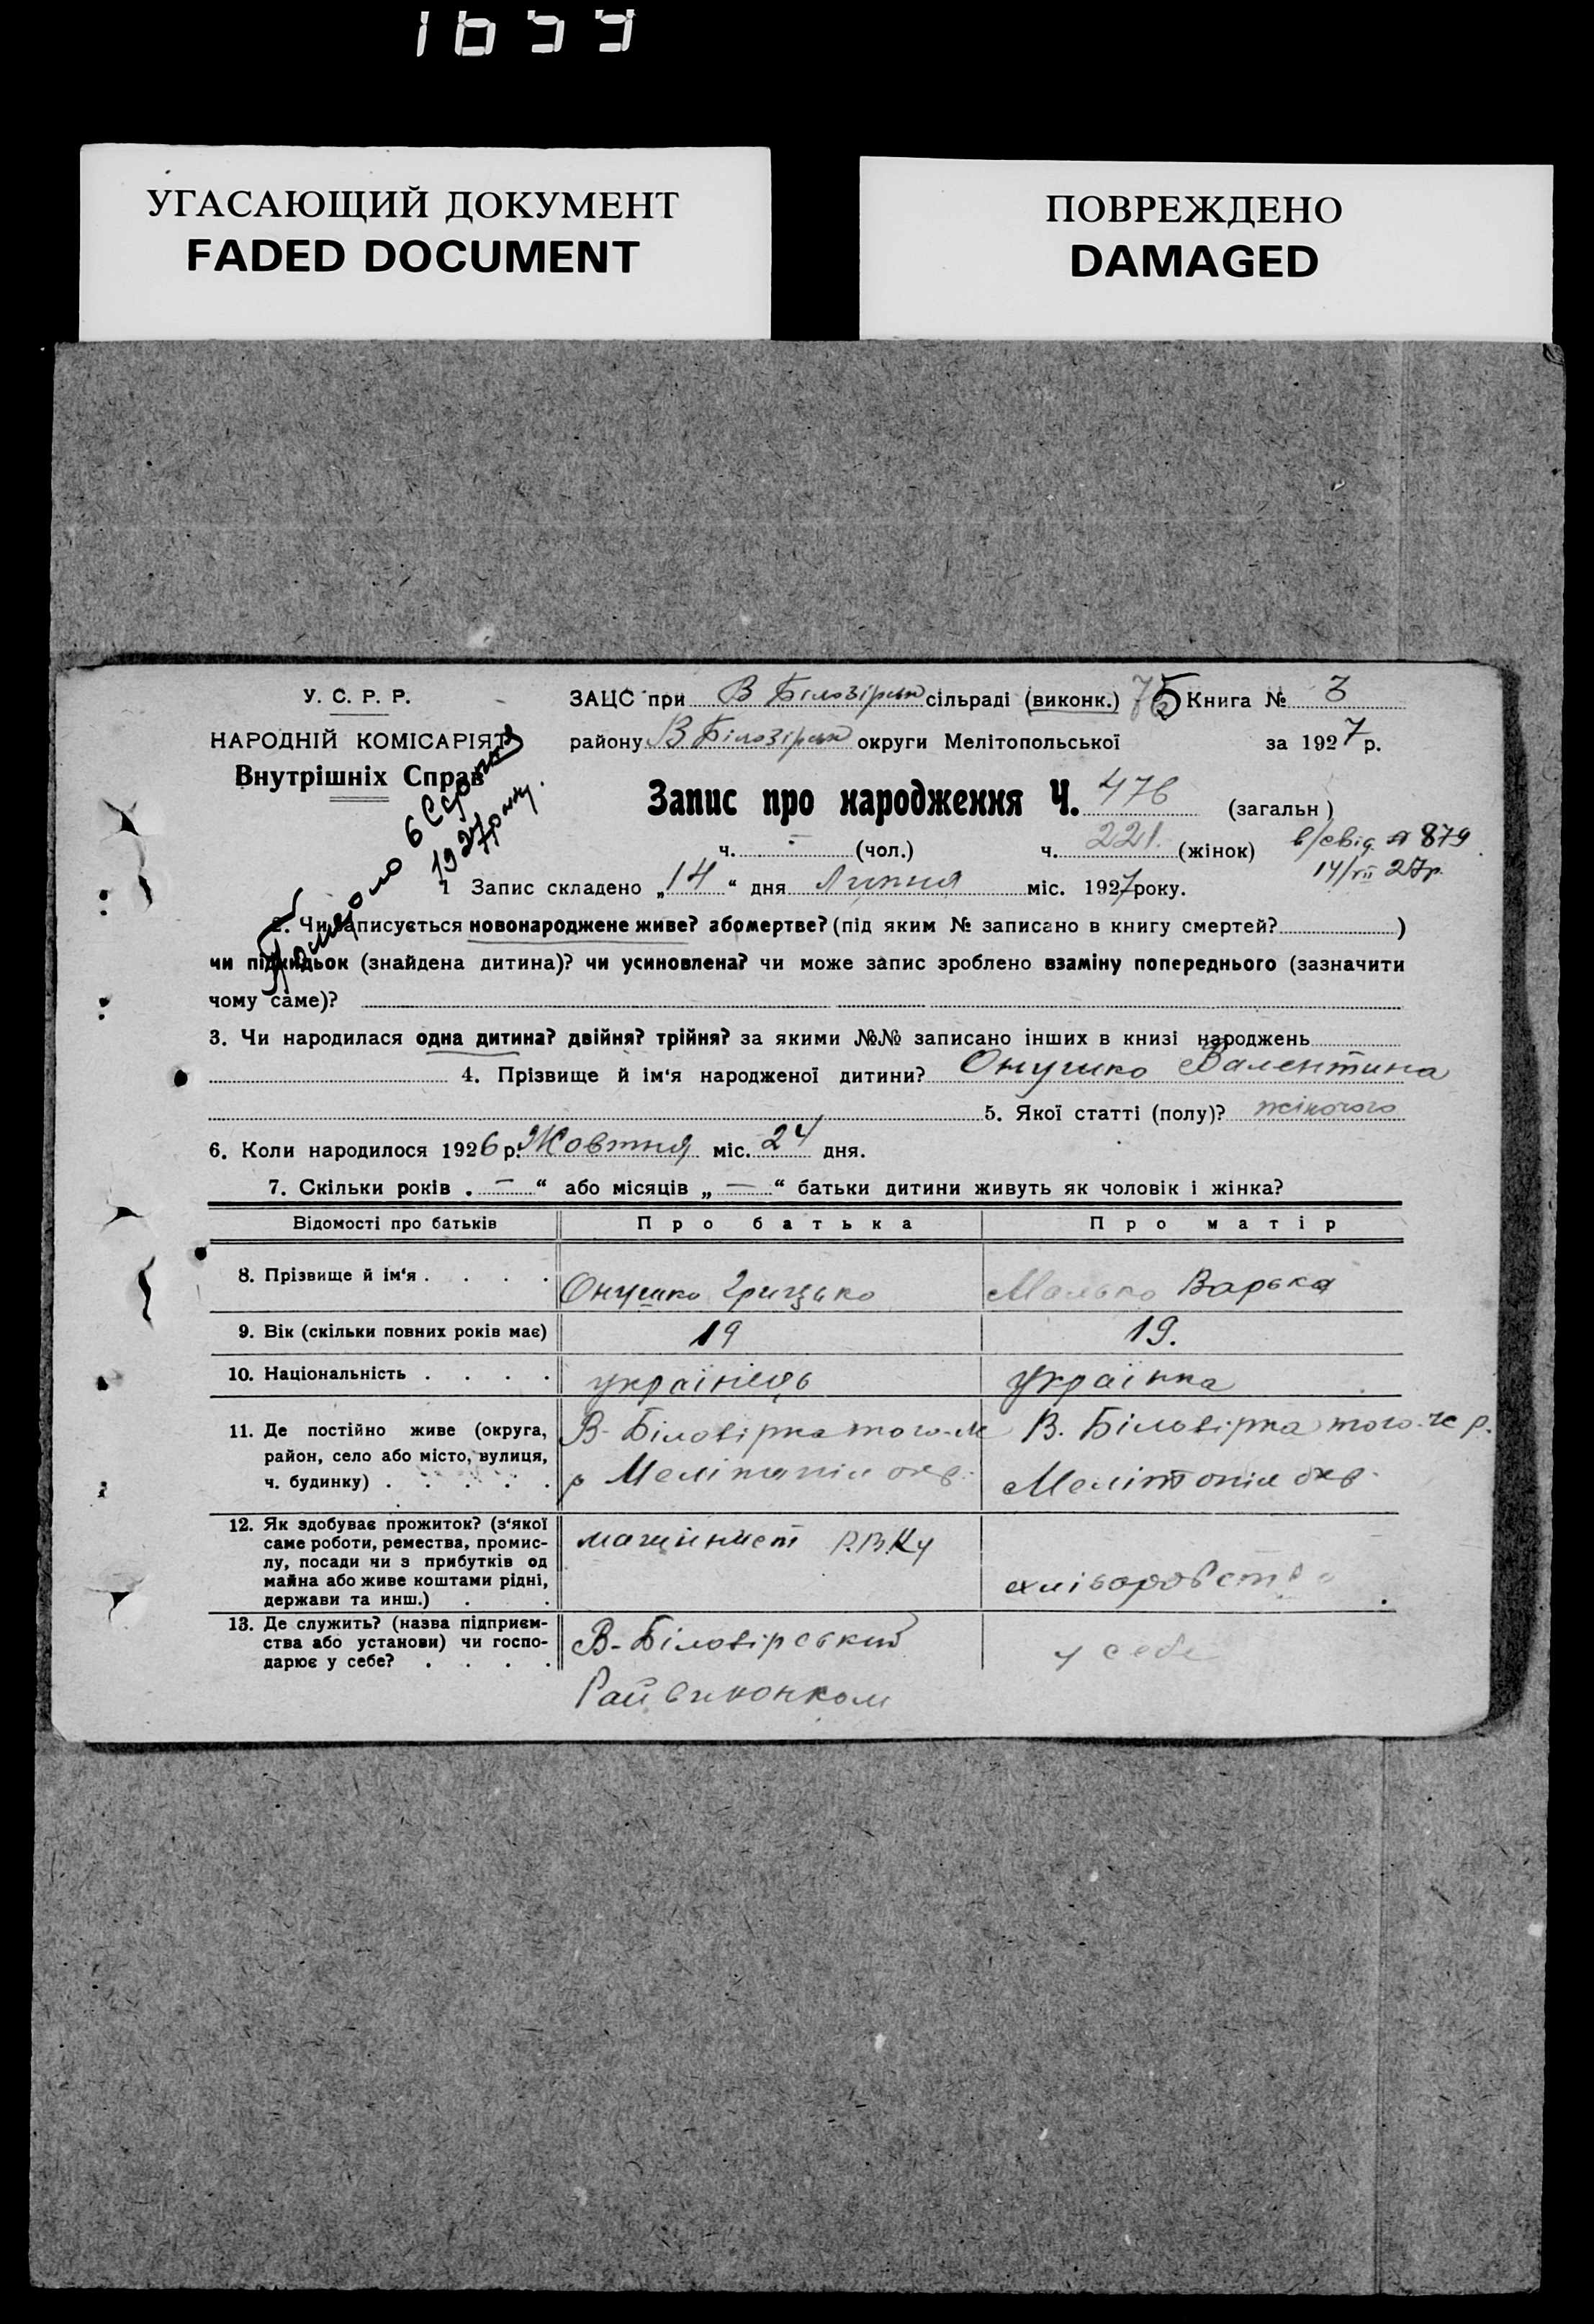 1659
УГАСАЮЩИЙ ДОКУМЕНТ
FADED DOCUMENT
ПОВРЕЖДЕНО
DAMAGED
У. С. Р. Р.
НАРОДНІЙ КОМІСАРІЯТ
Внутрішніх Справ
ЗАЦС при В Білозірськ сільраді (виконк.) 75 Книга № 3
району В Білозірськ округи Мелітопольської за 1927 р.
Запис про народження Ч. 476 (загальн)
ч. - (чол.) ч. 221. (жінок)
в/свід № 879
14/VII 27р.
Померло 6 Серпня
1927 року.
1 Запис складено „14“ дня Липня міс. 1927 року.
2. Чи записується новонароджене живе? або мертве? (під яким № записано в книгу смертей? )
чи підкидьок (знайдена дитина)? чи усиновлена? чи може запис зроблено взаміну попереднього (зазначити
чому саме)?
3. Чи народилася одна дитина? двійня? трійня? за якими №№ записано інших в книзі народжень
4. Прізвище й ім'я народженої дитини? Онушко Валентина
5. Якої статті (полу)? жіночого
6. Коли народилося 1926 р. Жовтня міс. 24 дня.
7. Скільки років „ — “ або місяців „ — “ батьки дитини живуть як чоловік і жінка?
Відомості про батьків Про батька Про матір
8. Прізвище й ім'я . . . . Онушко Грицько Малько Варька
9. Вік (скільки повних років має) 19 19.
10. Національність . . . . українець українка
11. Де постійно живе (округа,
район, село або місто, вулиця,
ч. будинку) . . . . .
В-Білозірка того-ж
р Мелітопіл окр.
В. Білозірка того-же р.
Мелітопіл окр.
12. Як здобуває прожиток? (з'якої
саме роботи, ремества, промис-
лу, посади чи з прибутків од
майна або живе коштами рідні,
держави та инш.) . .
машиніст Р.В.Ку
хліборобство
13. Де служить? (назва підприєм-
ства або установи) чи госпо-
дарює у себе? . . . .
В-Білозірський
Райвиконком
у себе